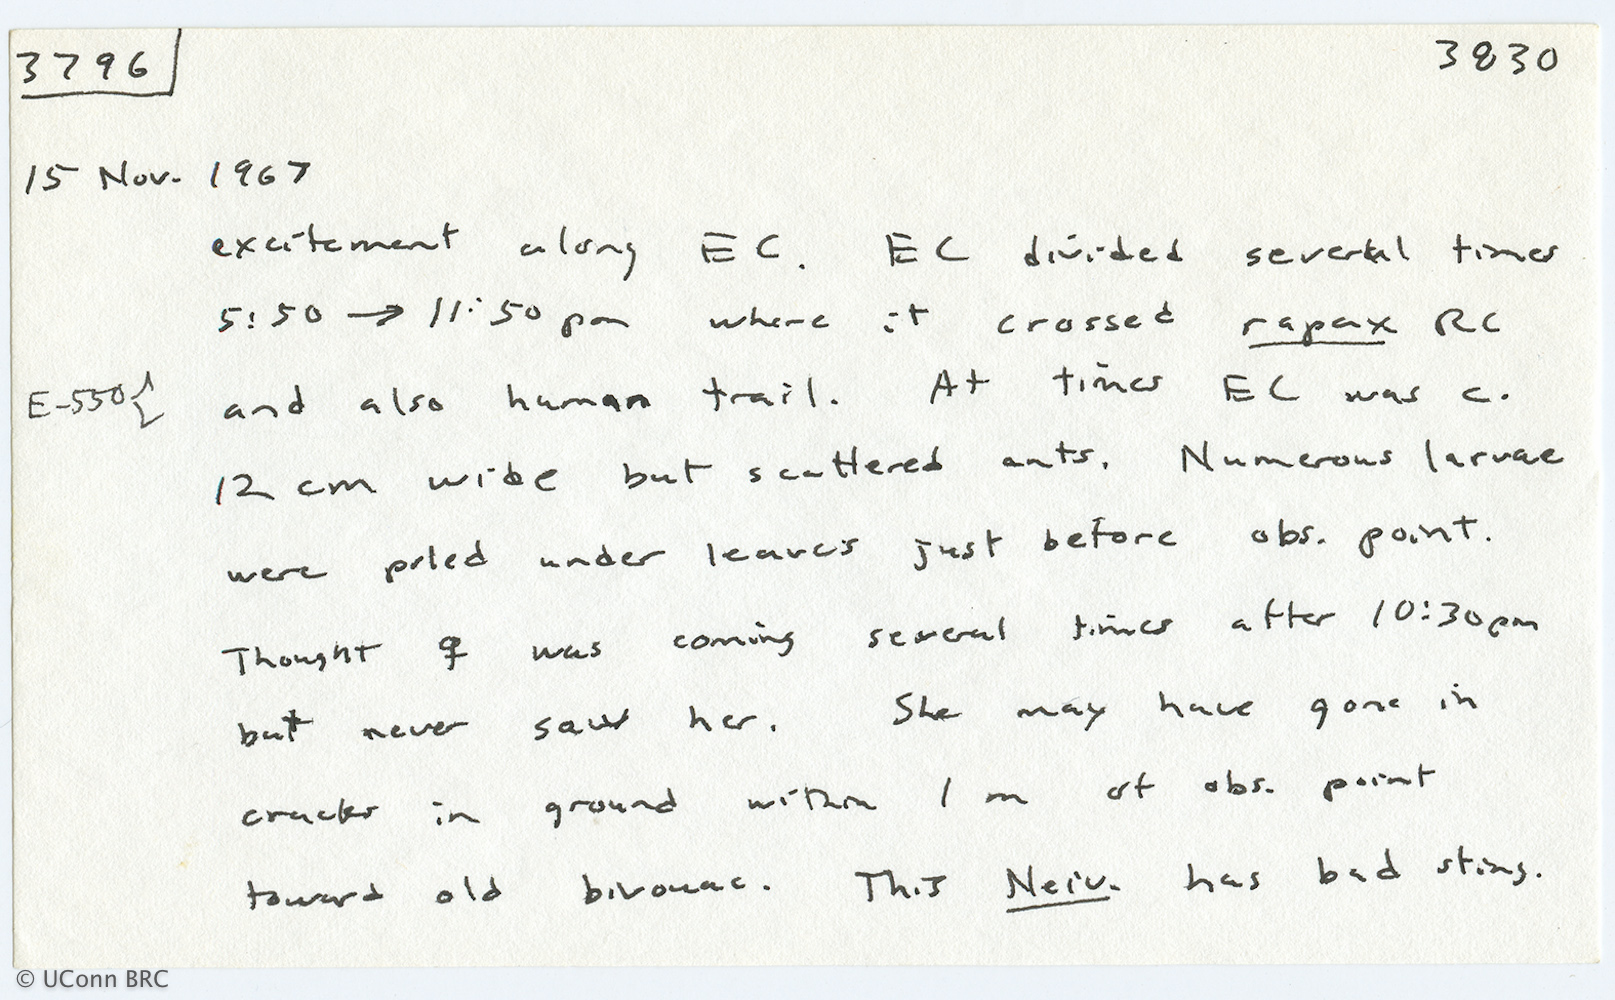 3796 3830
15 Nov. 1967
excitement along EC. EC divided several times
5:50 → 11:50 pm where it crossed rapax RC
E-550 { and also human trail. At times EC was c.
12 cm wide but scattered ants. Numerous larvae
were piled under leaves just before obs. point.
Thought ♀ was coming several times after 10:30pm
but never saw her. She may have gone in
cracks in ground within 1 m of obs. point
toward old bivouac. This Neiv. has bad sting.
© UConn BRC